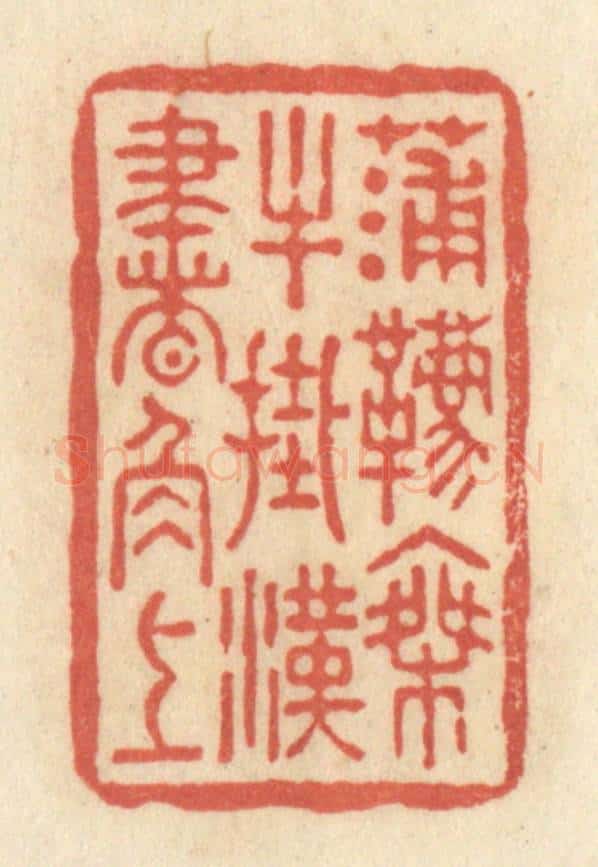 蒲韉乘
牛掛漢
書角上
Shufawang.CN